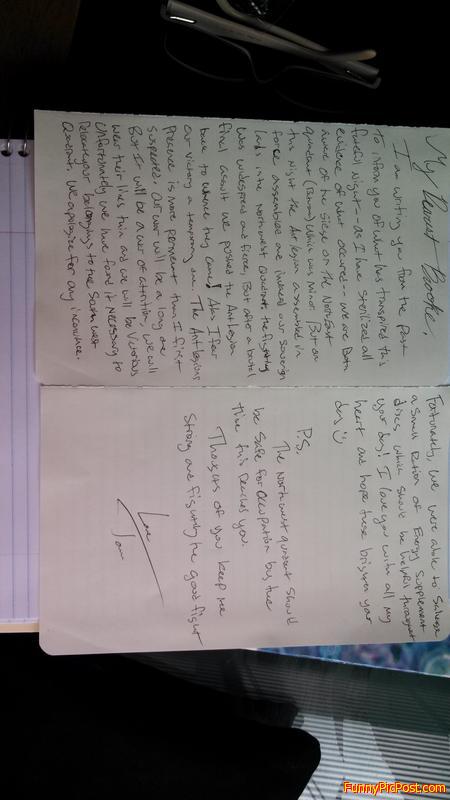 My Dearest Brooke,
I am writing you from the past
To inform you of what has transpired this
fateful night - as I have sterilized all
evidence of what occured - we are Both
aware of the siege on the NorthEast
quadrant which was minor. But on
this night the Ant legion assembled in
force assembled an inland our sovereign
lands in the Northwest Quadrant. the fighting
was widespread and fierce, But after a brutal
final assault we pushed the Ant legion
back to where they came! Alas I fear
our victory a temporary one. The Ant legions
Presence is more permanent than I first
suspected. Our war will be a long one
But I will be a war of attrition, we will
wear their lines thin and we will be Victorious
Unfortunately we have found it necessary to
Relocate your belongings to the Southwest
Quadrant. We apologize for any inconvience.
Fortunately, we were able to Salvage
a small Ration of Energy Supplement
discs which should be helpful throughout
your day! I love you with all my
heart and hope these brighten your
day ☺
P.S.
The Northwest quadrant should
be safe for occupation by the
time this reaches you.
Thoughts of you keep me
strong and fighting the good fight
Love
FunnyPicPost.com